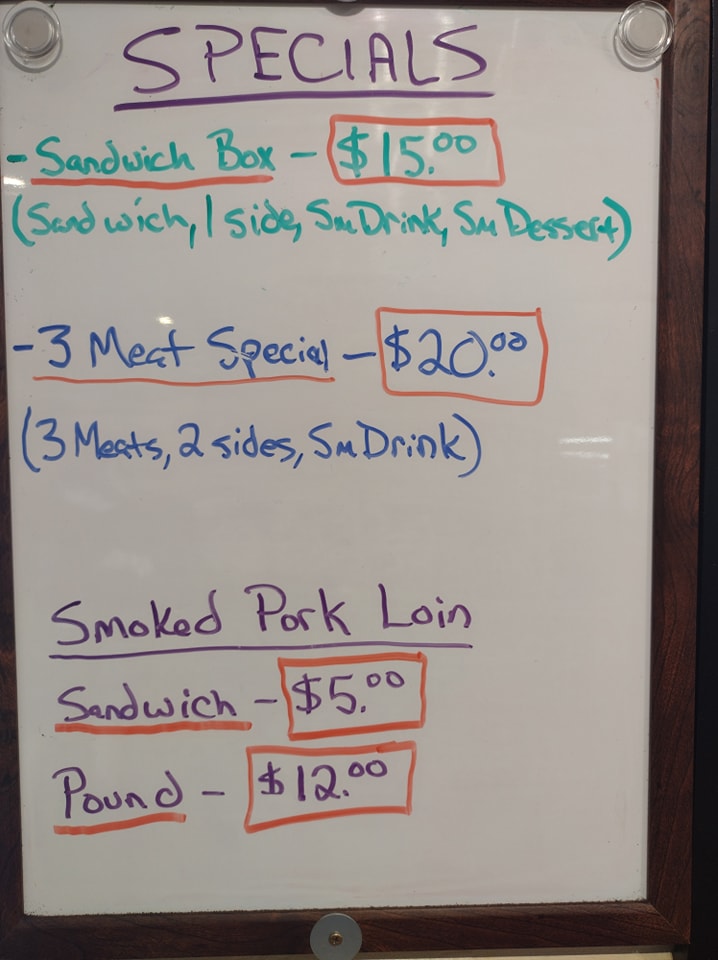 SPECIALS
- Sandwich Box - $15.00
(Sandwich, 1 side, Sm Drink, Sm Dessert)
- 3 Meat Special - $20.00
(3 Meats, 2 sides, Sm Drink)
Smoked Pork Loin
Sandwich - $5.00
Pound - $12.00